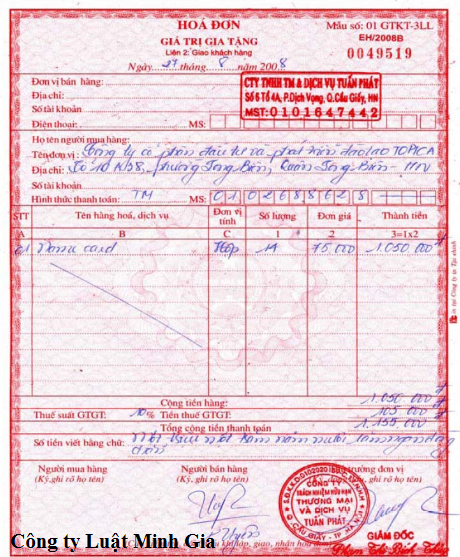 HOÁ ĐƠN
GIÁ TRỊ GIA TĂNG
Liên 2: Giao khách hàng
Ngày 27 tháng 8 năm 2008
Mẫu số: 01 GTKT-3LL
EH/2008B
0049519
Đơn vị bán hàng:
Địa chỉ:
Số tài khoản
Điện thoại: MS:
CTY TNHH TM & DỊCH VỤ TUẤN PHÁT
Số 6 Tổ 4A, P.Dịch Vọng, Q.Cầu Giấy, HN
MST: 0101647442
Họ tên người mua hàng:
Tên đơn vị: Công ty cổ phần đầu tư và phát triển đào tạo TOPICA
Địa chỉ: Long Biên, Quận Long Biên - HN
Số tài khoản
Hình thức thanh toán: TM MS: 0102688628
STT Tên hàng hoá, dịch vụ Đơn vị tính Số lượng Đơn giá Thành tiền
A B C 1 2 3=1x2
01 Name card Hộp 14 75.000 1.050.000đ
Cộng tiền hàng: 1.050.000đ
Thuế suất GTGT: 10% Tiền thuế GTGT: 105.000đ
Tổng cộng tiền thanh toán 1.155.000đ
Số tiền viết bằng chữ: Một triệu một trăm năm mươi lăm nghìn đồng
Người mua hàng Người bán hàng trưởng đơn vị
(Ký, ghi rõ họ tên) (Ký, ghi rõ họ tên) (Ký, ghi rõ họ tên)
CÔNG TY
TRÁCH NHIỆM HỮU HẠN
THƯƠNG MẠI
VÀ DỊCH VỤ
TUẤN PHÁT
Q.CẦU GIẤY - TP.
GIÁM ĐỐC
Công ty Luật Minh Giá